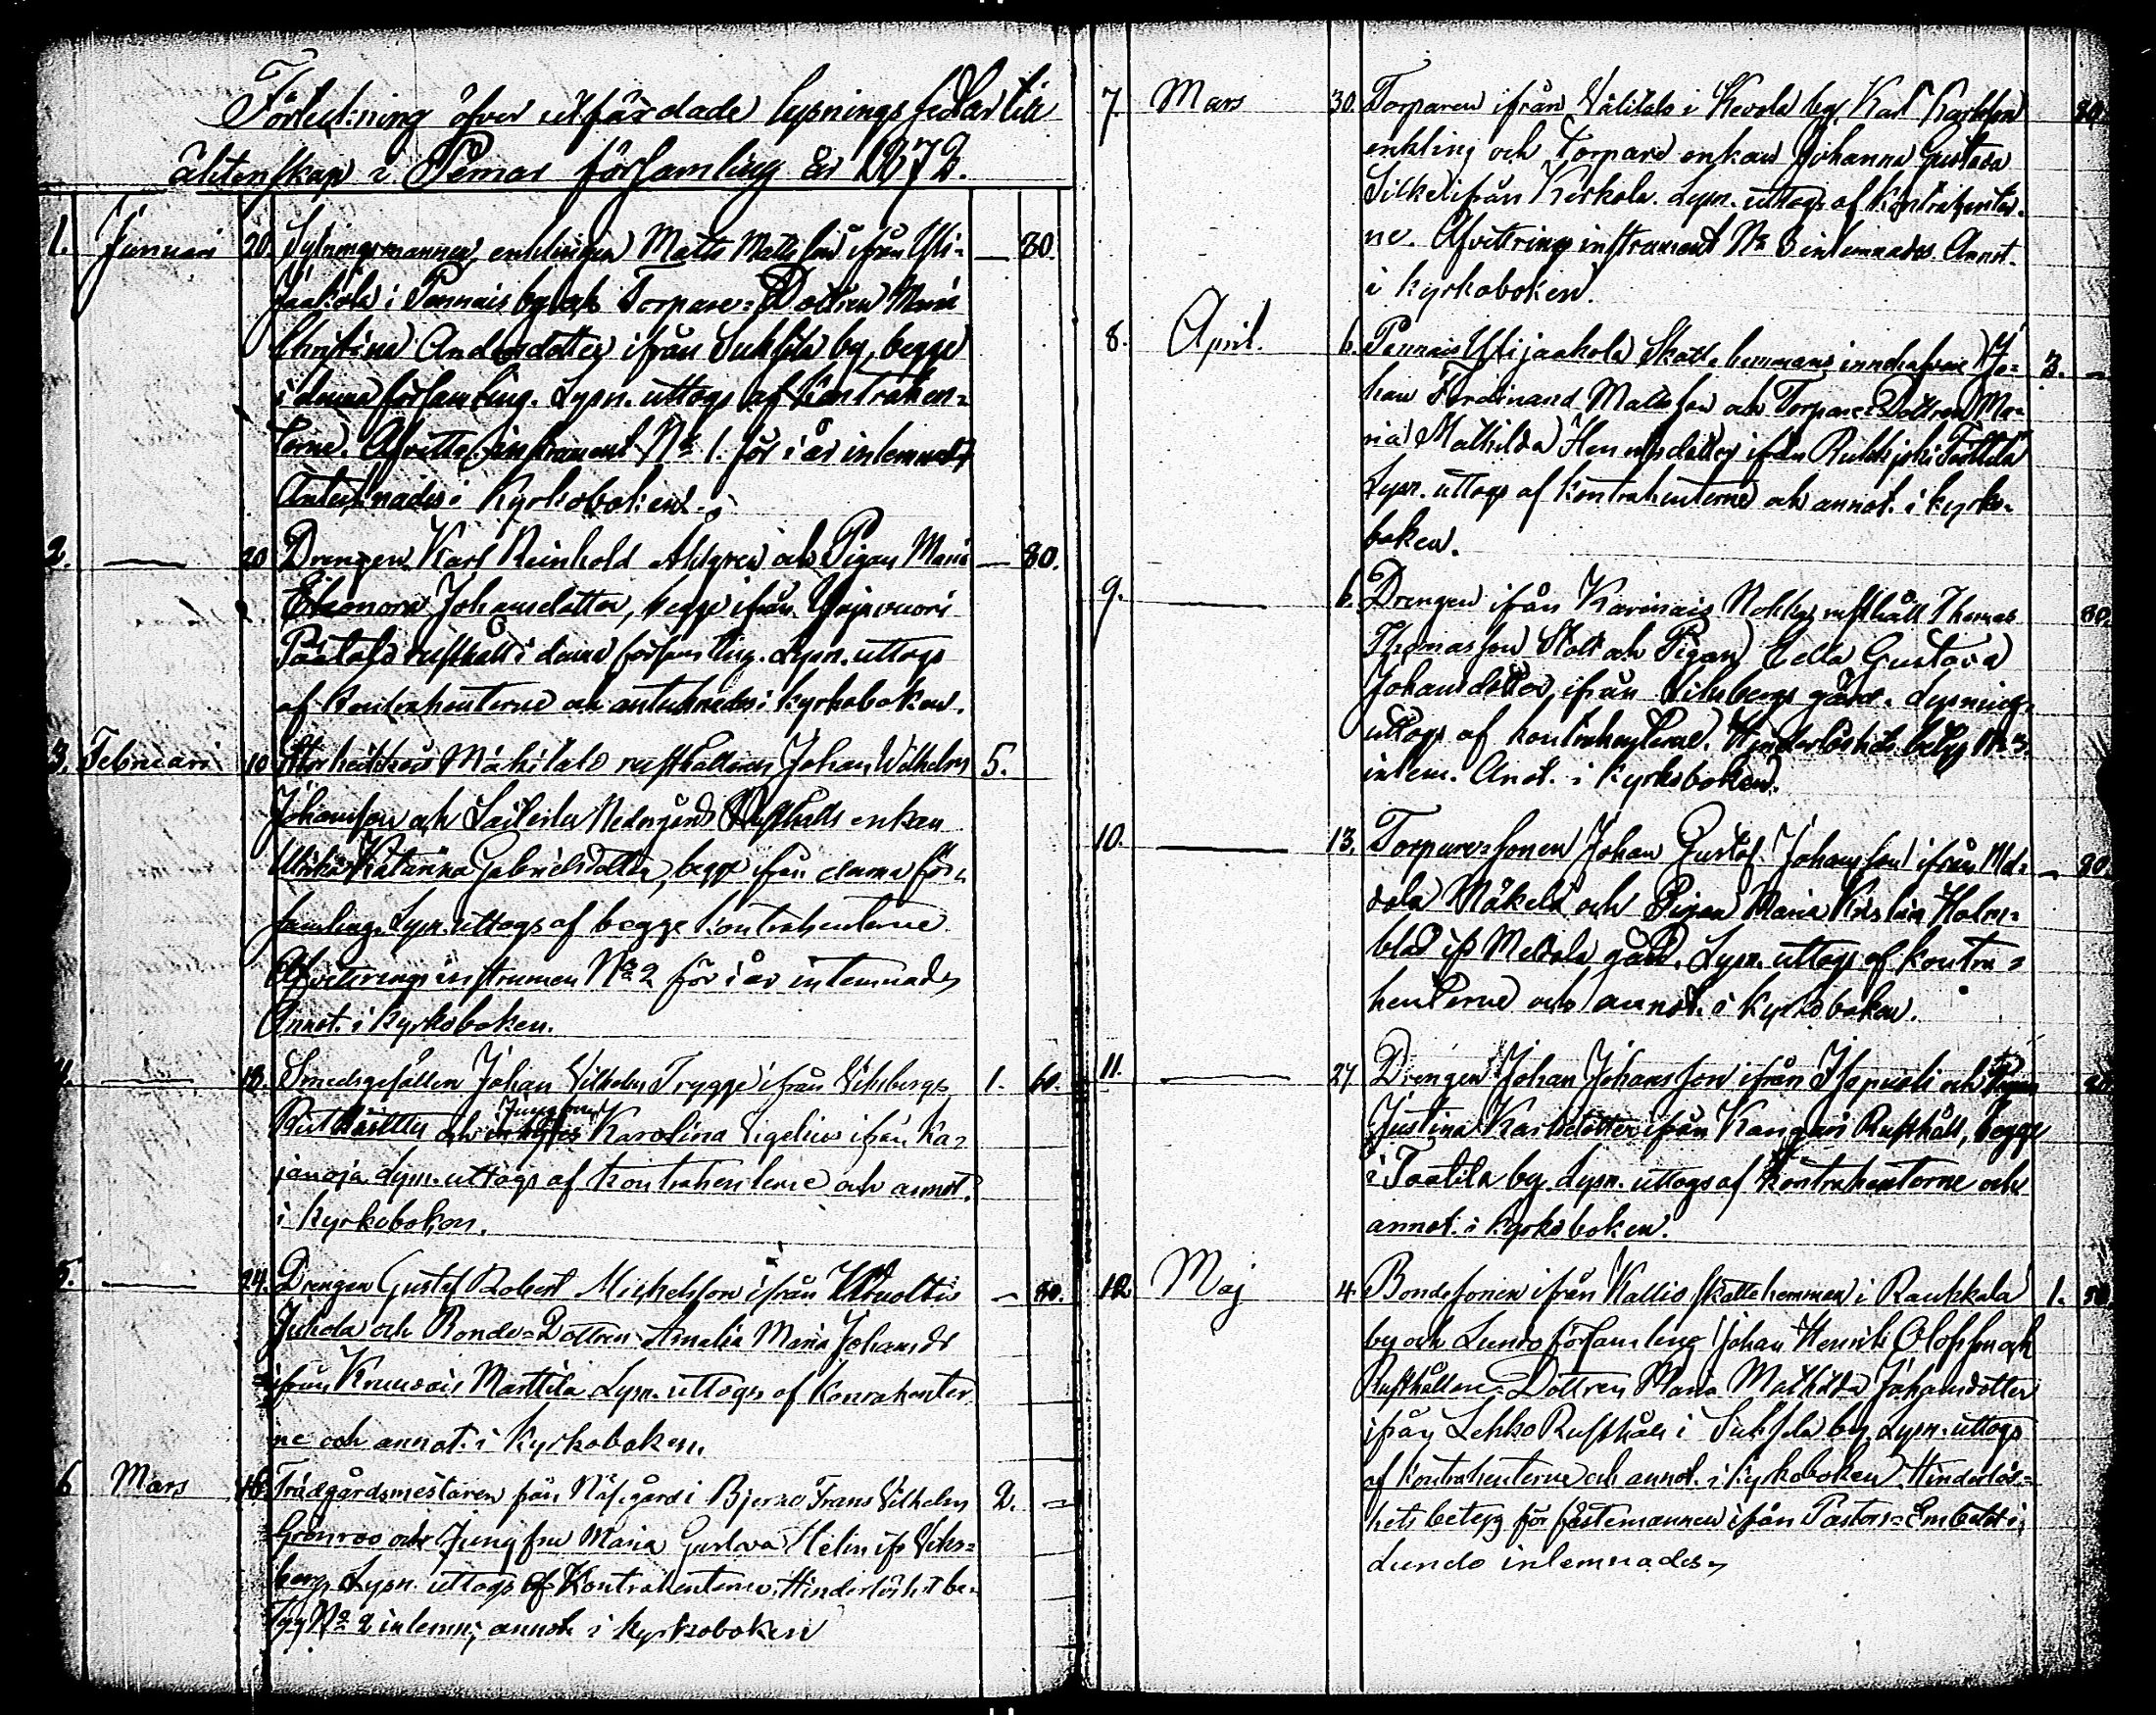 Förteckning öfver utfärdade lysningssedlar till
äktenskap i Pemar församling år 1872.
1. Januari 20. Sytningsmannen enklingen Matts Mattsson ifrån Yli= — 80.
jaakola i Pennais by och Torpare=Dottren Maria
Christina Andersdotter ifrån Suksela by, begge
i denna församling. Lysn. uttogs af Kontrahen=
terne. Afvittr. instrument No 1. för i år inlemnades
Antecknades i Kyrkoboken.
2. — 20 Drengen Karl Reinhold Ahlgren och Pigan Maria — 80.
Eleonora Johansdotter, begge ifrån
rusthåll i denna församling. Lysn. uttogs
af Kontrahenterne och antecknades i kyrkoboken.
3. Februari 10 Mäkilä rusthållaren Johan Wilhelm 5.
Johansson och Nedergård Rusthålls enkan
Ulrika Katarina Gabrielsdotter, begge ifrån denna för=
samling. Lysn. uttogs af begge Kontrahenterne
Afvittrings instrumen No 2 för i år inlemnades
Annot. i kyrkoboken.
4. — 18. Smedsgesällen Johan Vilhelm Trygg ifrån Viksbergs 1. 60.
och Jungfrun Karolina Sigelius ifrån Ka=
janoja. Lysn. uttogs af Kontrahenterne och annot.
i kyrkoboken.
5. — 24. Drengen Gustaf Robert Michelsson ifrån — 80.
Juhola och Bonde=Dottren Amalia Maria Johansdr
ifrån Kruusais Marttila Lysn. uttogs af Konrahenter
ne och annot. i Kyrkoboken.
6 Mars 16. Trädgårdsmestaren från Näsegård i Bjerno Frans Vilhelm 2. —
Grönroo och Jungfru Maria Gustava Helin ifr. Viks=
berg. Lysn. uttogs af Kontrahenterne. Hinderlöshet be=
tyg No 2 inlemn; annot i kyrkoboken
7. Mars 30. Torparen ifrån Välitalo i Kevola by, Karl Karlsson 80.
enkling och Torpare enkan Johanna Gustava
Silke ifrån Kirkola. Lysn. uttogs af Kontrahenter=
ne. Afvittrings instrument No 3 inlemnades. Annot.
i kyrkoboken.
8. April. 6. Pennais Ylijaakola Skatte hemmans innehafvare Jo= 3. —
han Ferdinand Mattsson och Torpare=Dottren Ma=
ria Mathilda Henriksdotter ifrån
Lysn. uttogs af Kontrahenterne och annot. i kyrko=
boken.
9. — 6. Drengen ifrån Karinais Nokka rusthåll Thomas 80.
Thomasson och Pigan Edla Gustava
Johansdotter, ifrån Viksbergs gård. Lysning.
uttogs af kontrahenterne. Hinderlöshets betyg No 3.
inlem. Anot. i kyrkoboken.
10. — 13. Torpare=sonen Johan Gustaf Johansson ifrån Mel= — 80.
dola Mäkelä och Pigan Maria Kristina Holm=
blad ifr Meldola gård. Lysn. uttogs af kontra=
henterne och annot. i Kyrkoboken.
11. — 27 Drengen Johan Johansson ifrån Isopuoli och Pigan 80.
Justina Karlsdotter ifrån Kangas Rusthåll, begge
i Taatila by. Lysn. uttogs af Kontrahenterne och
annot. i kyrkoboken.
12 Maj 4. Bondesonen ifrån Kallio skattehemman i Raukkala 1.
by och Lundo församling Johan Henrik Olofsson och
Rusthållare=Dottren Maria Mathilda Johansdotter
ifrån Lehko Rusthåll i Suksela by. Lysn. uttogs
af Kontrahenterne och annot. i kyrkoboken. Hinderlös=
hets betyg för fästemannen ifrån Pastors=Embetet i
Lundo inlemnades.